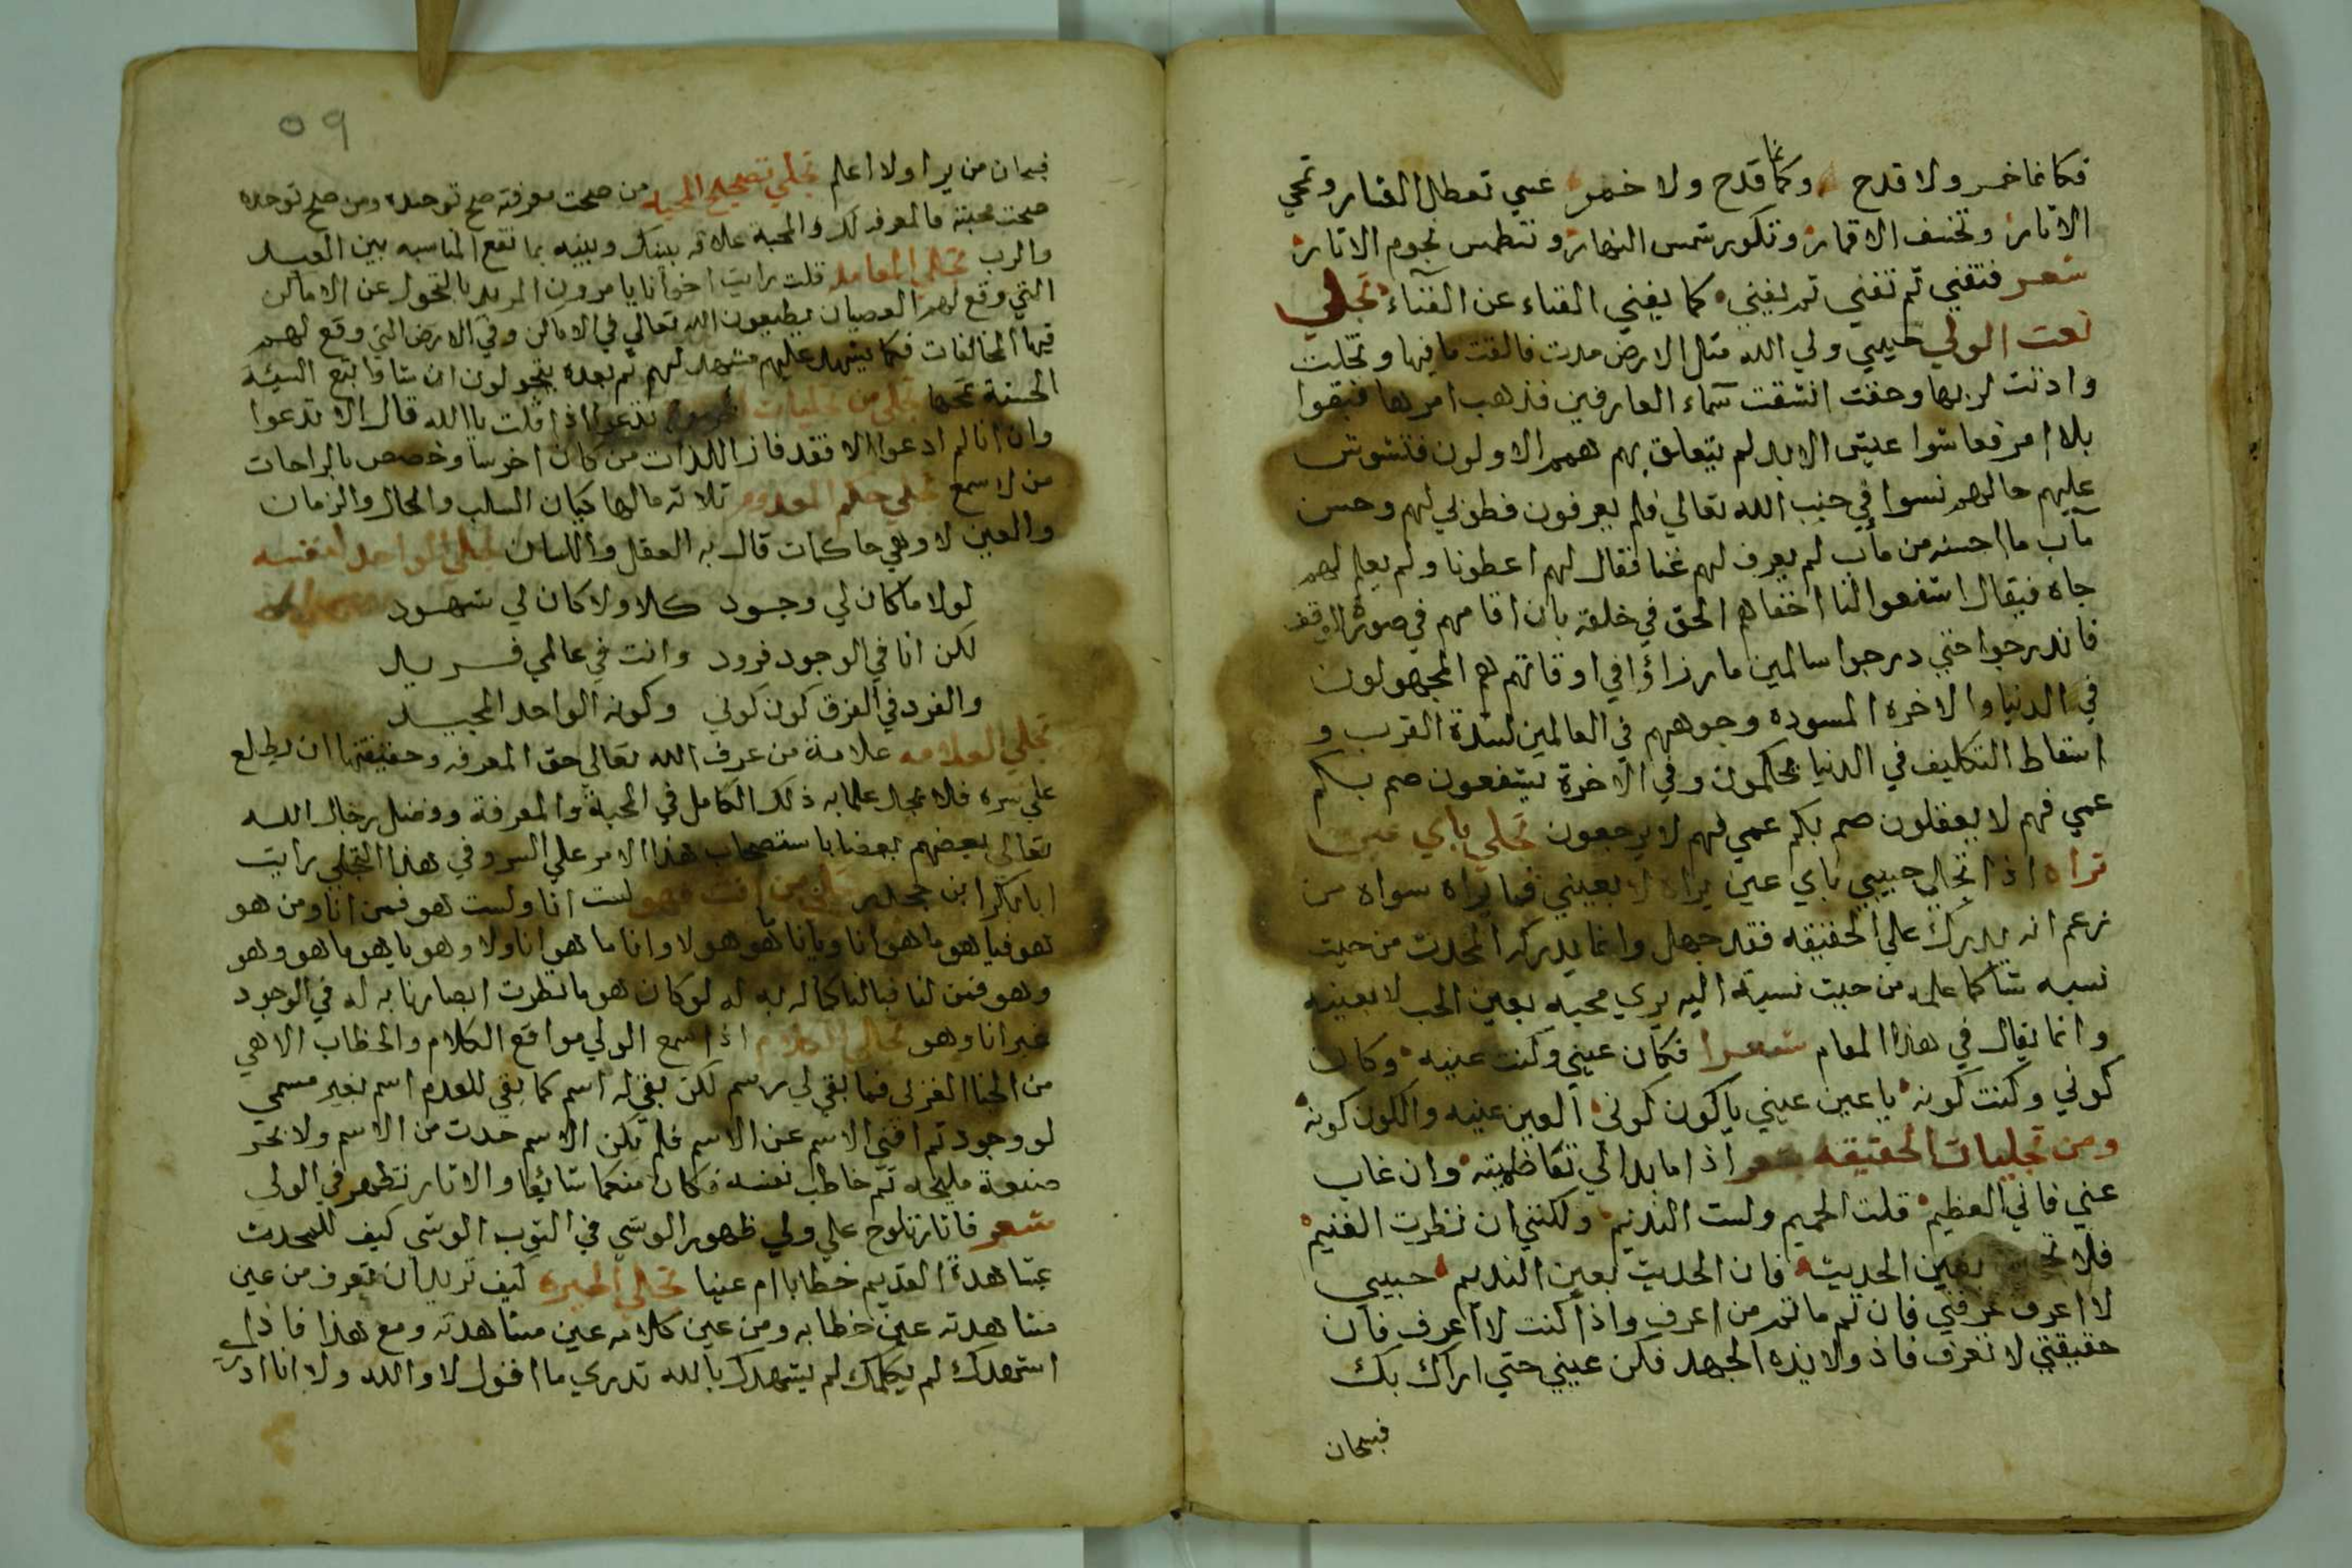 فكانما خمر ولا قدح وكانما قدح ولا خمر عسي تعطل العشار وتمحي
الاثار وتخسف الاقمار وتكور شمس النهار وتنطمس نجوم الاثار
شعر فتفني ثم تفني ثم يفني كما يفني الفناء عن الفناء تجلي
نعت الولي حبيبي ولي الله مثل الارض مدت فالقت ما فيها وتخلت
واذنت لربها وحقت انشقت سماء العارفين فذهب امرها فبقوا
بلا امر فعاشوا عيش الابد لم يتعلق بهم همم الاولون فتشوش
عليهم حالهم نسوا في جنب الله تعالي فلم يعرفون فطوبي لهم وحسن
مآب ما احسنه من مآب لم يعرف لهم غنا فقال لهم اعطونا ولم يعلم لهم
جاه فيقال اشفعوا لنا اخفاهم الحق في خلقه بان اقامهم في صورة الوقت
فاندرجوا حتي درجوا سالمين ما رزاؤا في اوقاتهم هم المجهولون
في الدنيا والاخره المسوده وجوههم في العالمين لشدة القرب و
اسقاط التكليف في الدنيا محكمون وفي الاخرة يشفعون صم بكم
عمي فهم لا يعقلون صم بكم عمي فهم لا يرجعون تجلي باي عين
تراه اذا تجلي حبيبي باي عين يراه لا بعيني فما يراه سواه من
زعم انه يدرك علي الحقيقه فقد جهل وانما يدركه المحدث من حيث
نسبه شا كما علمه من حيث نسبة اليه يري محبه بعين الحب لا بعينه
وانما يقال في هذا المقام شعرا فكان عيني وكنت عينه وكان
كوني وكنت كونه يا عين عيني يا كون كوني العين عينه والكون كونه
ومن تجليات الحقيقه شعر اذا ما بدا لي تعاظمته وان غاب
عني فاني العظيم قلت الحميم ولست النديم ولكنني ان نظرت الغنيم
فلا بعين الحديث فان الحديث بعين النديم حبيبي
لا اعرف عرفني فان لم ما ثم من اعرف واذا كنت لا اعرف فان
حقيقتي لا تعرف فاذ ولا بذه الجهد فكن عيني حتي اراك بك
فسبحان
٥٩
فسبحان من يرا ولا اعلم تجلي تصحيح المحبه من صحت معرفته صح توحيده ومن صح توحيده
صحت محبته فالمعرفه لك والمحبة علاقه بينك وبينه بما تقع المناسبه بين العبد
والرب تجلي المعامله قلت رايت اخوانا يامرون المريد بالتحول عن الاماكن
التي وقع لهم العصيان يطيعون الله تعالي في الاماكن وفي الارض التي وقع لهم
فيها المخالفات فكما يشهد عليهم مشهد لهم ثم بعده يتحولون ان شاوا اتبع السيئه
الحسنة تمحها تجلي من تجليات تدعوا اذا قلت يا الله قال الا تدعوا
وان انا لم ادعوا الا فقد فاز اللذات من كان اخرسا وخصص بالراحات
من لا سمع تجلي حكم المعدوم ثلاثه مالها كيان السلب والحال والزمان
والعين لا وهي حاكمات قال به العقل واللسان تجلي الواحد لنفسه
لولاه ما كان لي وجود كلا ولا كان لي شهود
لكن انا في الوجود فرود وانت في عالمي فريد
والفرد في الفرق كون كوني وكونه الواحد المجيد
تجلي العلامه علامة من عرف الله تعالي حق المعرفه وحقيقتها ان يطلع
علي سره فلا يجد علما به ذلك الكامل في المحبة والمعرفة وفضل رجال الله
تعالي بعضهم بعضا باستصحاب هذا الامر علي السر وفي هذا التجلي رايت
ابا بكر ابن جحدر تجلي من انت فهو لست انا ولست هو فمن انا ومن هو
هو فيا هو ما هو انا ويا انا هو هو لا وانا ما هو انا ولا وهو يا هو ما هو وهو
وهو فمن لنا فبالنا كما له به له لو كان هو ما نظرت ابصارنا به له في الوجود
غير انا وهو تجلي الكلام اذا سمع الولي مواقع الكلام والخطاب الاهي
من الحنا الغربي فما بقي لي رسم لكن بقي له اسم كما بقي للعدم اسم بغير مسمي
لو وجود ثم افني الاسم عن الاسم فلم يكن الاسم حدث من الاسم ولا بحر
صنعة مليحه ثم خاطب نفسه فكان منعما سائغا والاثار تظهر في الولي
شعر فاثار تلوح علي ولي ظهور الوشي في الثوب الوشي كيف للمحدث
بمشاهدة القديم خطابا ام عينا تجلي الحيره كيف تريد ان تعرف من عين
مشاهدته عين خطابه ومن عين كلامه عين مشاهدته ومع هذا فاذا
اشهدك لم يكلمك لم يشهدك بالله تدري ما اقول لا والله ولا انا ادري